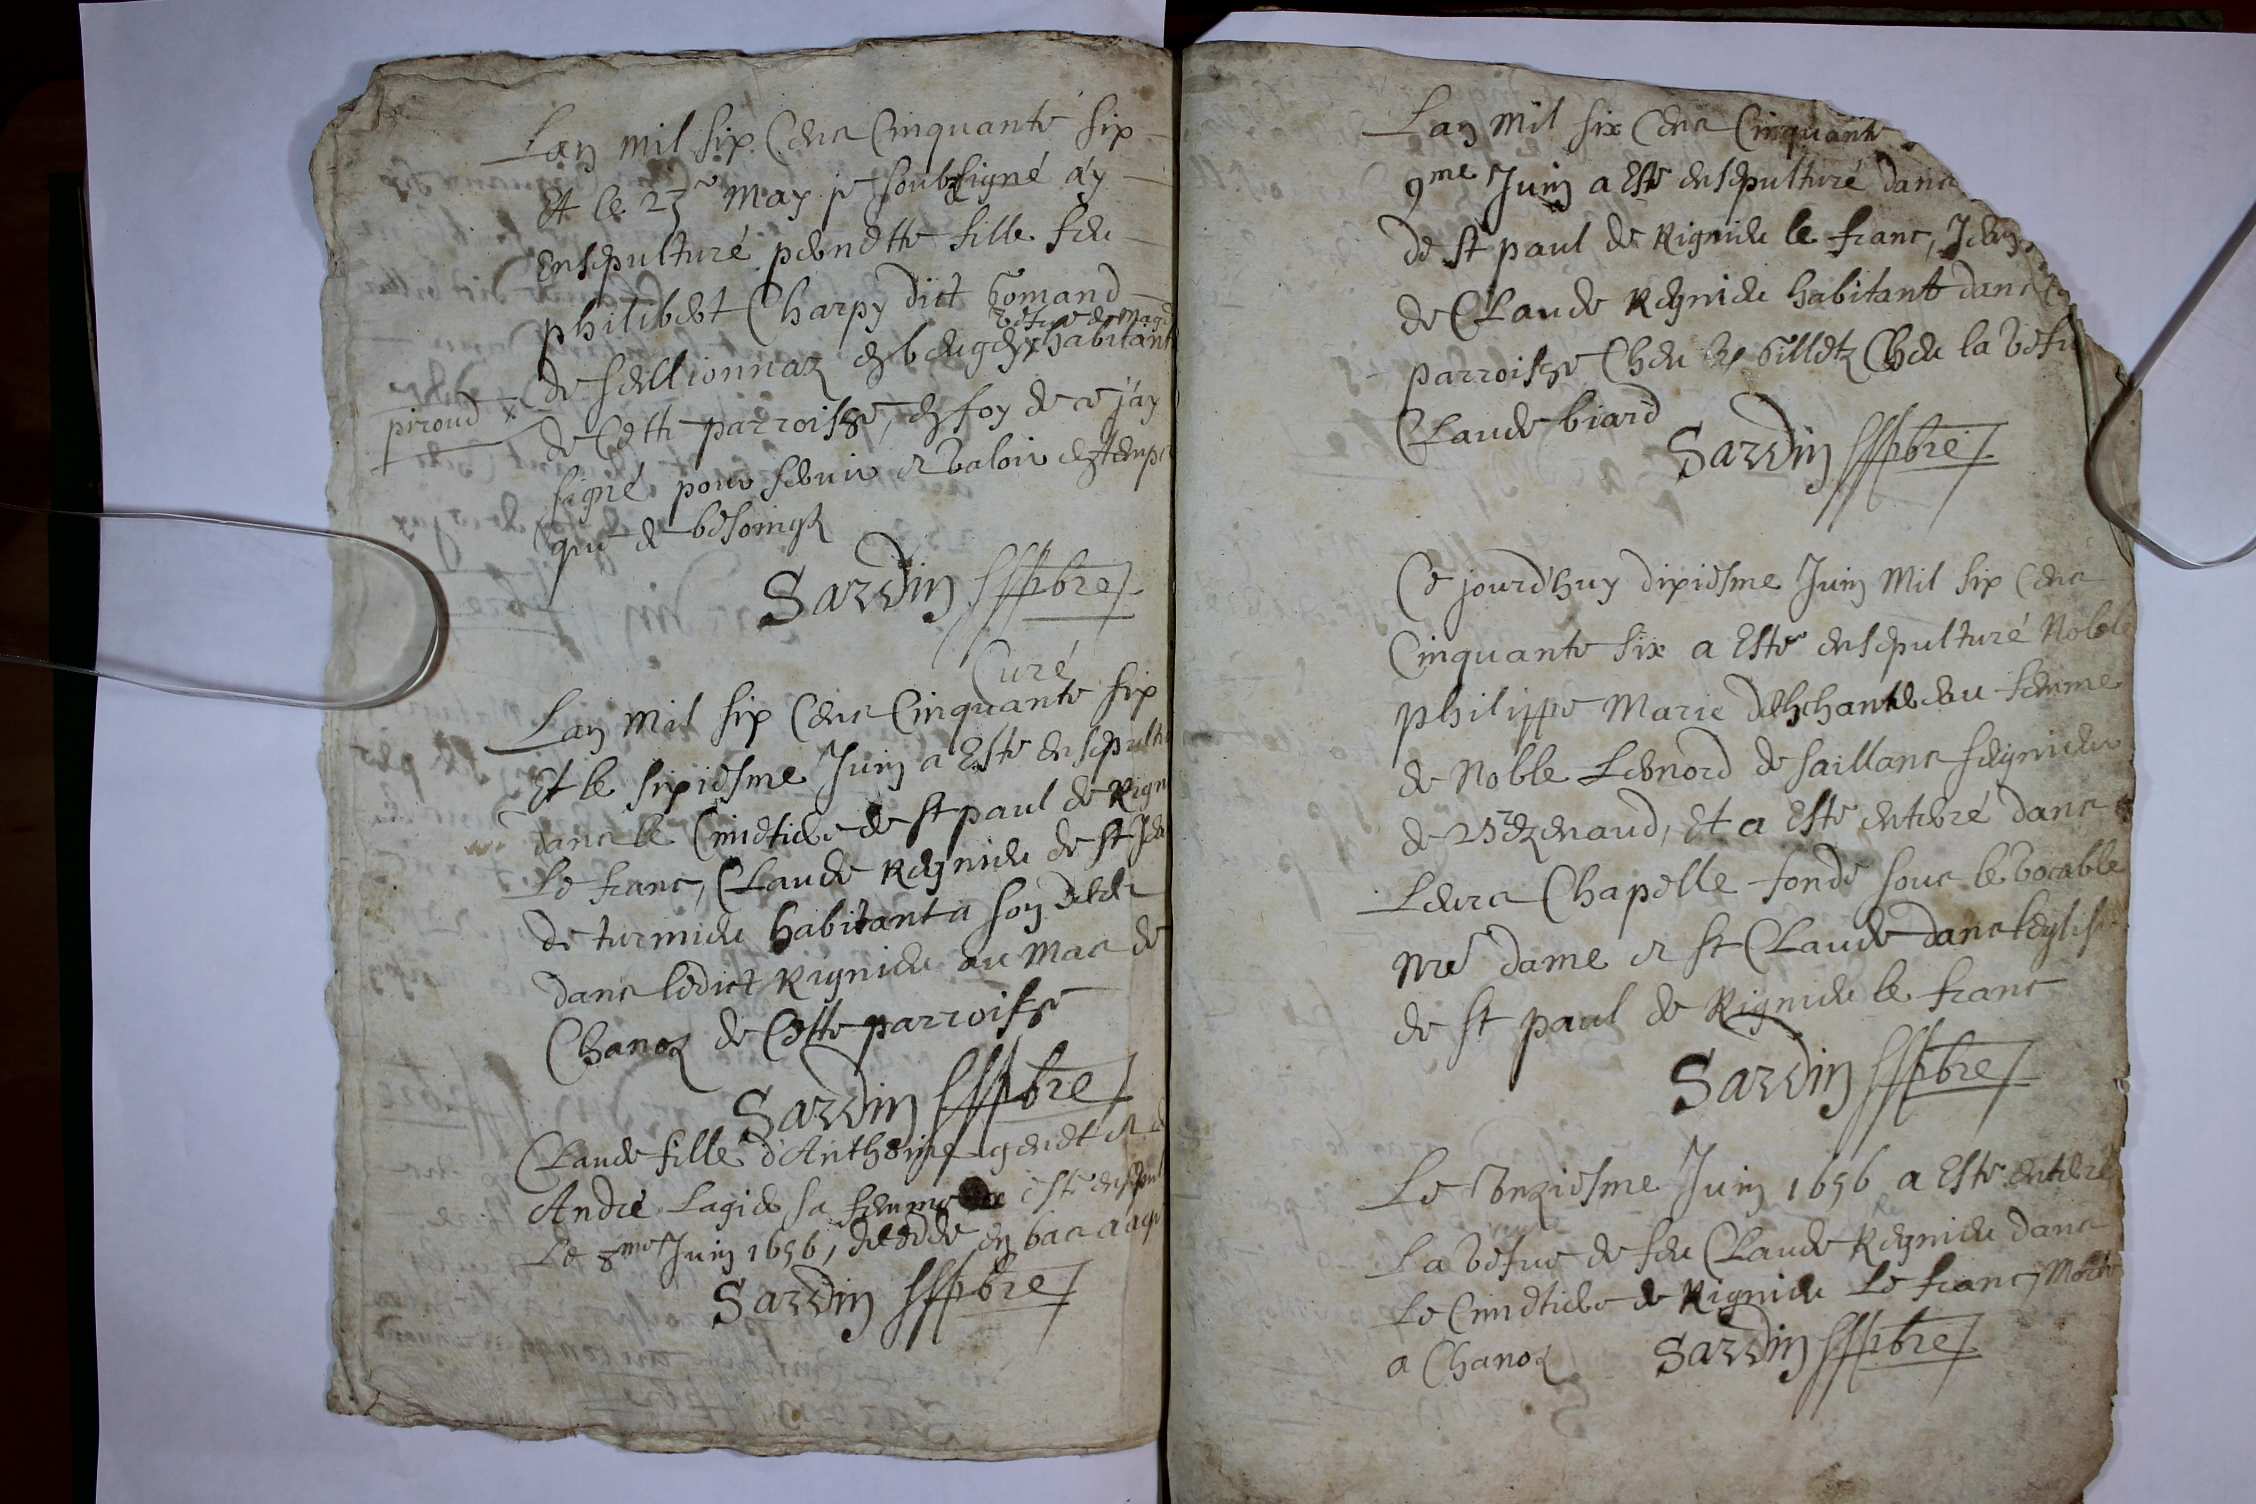 Lan mil six Cens Cinquante six
Et le 23e May je soubzsigné ay
ensepulturé pernette fille feu
philibert Charpy dict Gomand
vefue de
de sellionnaz en beugey x habitant
piroud x
de Cette parroisse, en foy de ce j'ay
signé pour servir et valoir en temps
que de besoingz
Sardin pbre
Curé
Lan Mil six Cens Cinquante six
Et le sixiesme Juin a Este ensepultu
dans le Cimetiere de st paul de Rign
le franc, Claude Reynier de st Je
de turmier habitant a son deces
dans ledict Rignier au Mas de
Chanoz de Cette parroisse
Sardin pbre
Claude fille d'Anthoine genet et d
André Lagier sa femme este ensepul
Le 8me Juin 1656, en bas aage
Sardin pbre
Lan Mil six Cens Cinquante
9me Juin a Este ensepulturé dans
de st paul de Rignier le franc, Jean
de Claude Reynier habitant dans
parroisse Cheu les Gilletz Cheu la vefu
Claude biard
Sardin pbre
Ce jourd'huy dixiesme Juin Mil six Cens
Cinquante six a Este ensepulturé Noble
philippe Marie femme
de Noble Leonord de saillans seignieur
de Brezenaud, Et a Este enterré dans
Leurs Chapelle fondé sous le vocable
Nre dame et st Claude dans leglise
de st paul de Rignier le franc
Sardin pbre
Le Onziesme Juin 1656 a Este enterré
La vefue de feu Claude Reynier dans
Le Cimetiere de Rignier Le franc, Morte
a Chanoz Sardin pbre